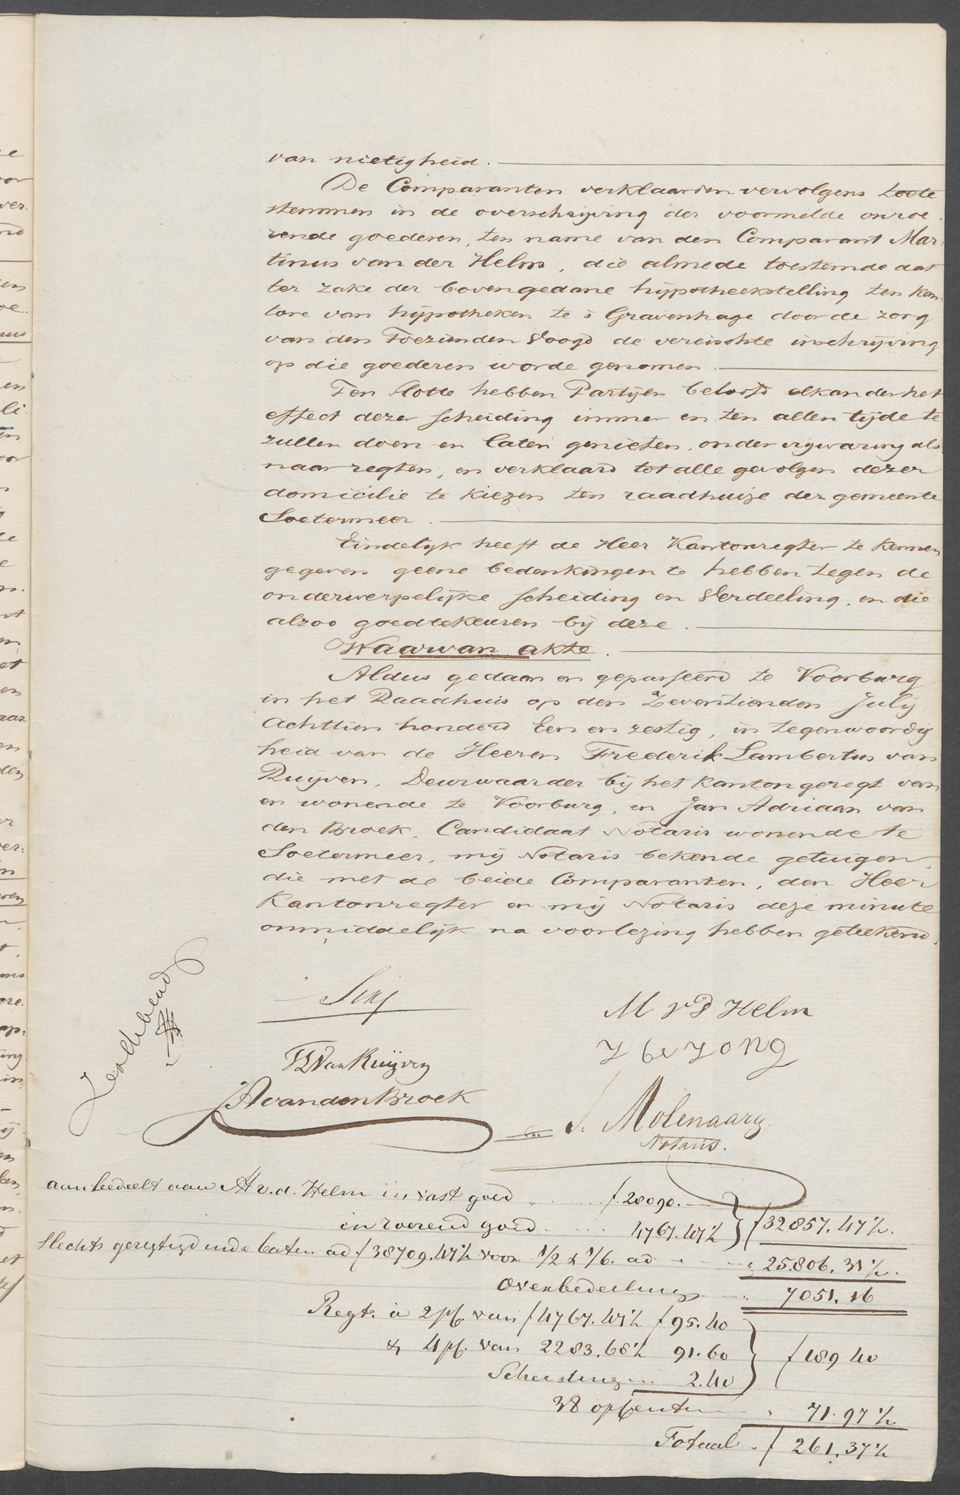 van nietigheid.
De Comparanten verklaarden vervolgens toete
stemmen in de overschrijving der voormelde onroe
rende goederen, ten name van den Comparant Mar
tinus van der Helm, die almede toestemde dat
ter zake der bovengedane hijpotheekstelling ten kan
tore van hijpotheken te s Gravenhage door de zorg
van den Toezienden Voogd de vereischte inschrijving
op die goederen worde genomen.
Ten slotte hebben Partijen beloofd elkander het
effect dezer scheiding immer en ten allen tijde te
zullen doen en laten genieten, onder vrijwaring als
naar regten, en verklaard tot alle gevolgen dezer
domicilie te kiezen ten raadhuize der gemeente
Soetermeer.
Eindelijk heeft de Heer Kantonregter te kennen
gegeven geene bedenkingen te hebben tegen de
onderwerpelijke scheiding en Verdeeling, en die
alzoo goedtekeuren bij deze.
Waarvan akte.
Aldus gedaan en gepasseerd te Voorburg
in het Raadhuis op den Zeventienden Julij
Achttien honderd Een en zestig, in tegenwoordig
heid van de Heeren Frederik Lambertus van
Ruijven, Deurwaarder bij het kantongeregt van
en wonende te Voorburg, en Jan Adriaan van
den Broek, Candidaat Notaris wonende te
Soetermeer, mij Notaris bekende getuigen,
die met de beide Comparanten, den Heer
Kantonregter en mij Notaris deze minute
onmiddelijk na voorlezing hebben geteekend.
M v d Helm
J de Jong
FL Van Ruijven
JA van den Broek
J. Molenaar
Notaris.
aanbedeelt aan M v. d. Helm in vast goed f 28090.-
in roerend goed 4767.47½ } f 32857.47½.
Slechts geregtigd in de baten ad f 38709.47½ voor 1/2 & 1/6. ad " 25.806.31½.
Overbedeeling " 7051.16
Regt. à 2 pct. van f 4767.47½ f 95.40
& 4 pct. van 2283.68½ 91.60 } f 189 40
Scheiding 2.40
38 opcenten " 71.97½
Totaal f 261,37½